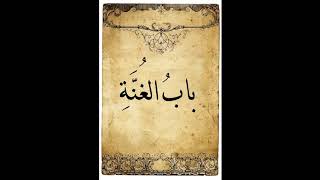 بابُ الغُنَّةِ